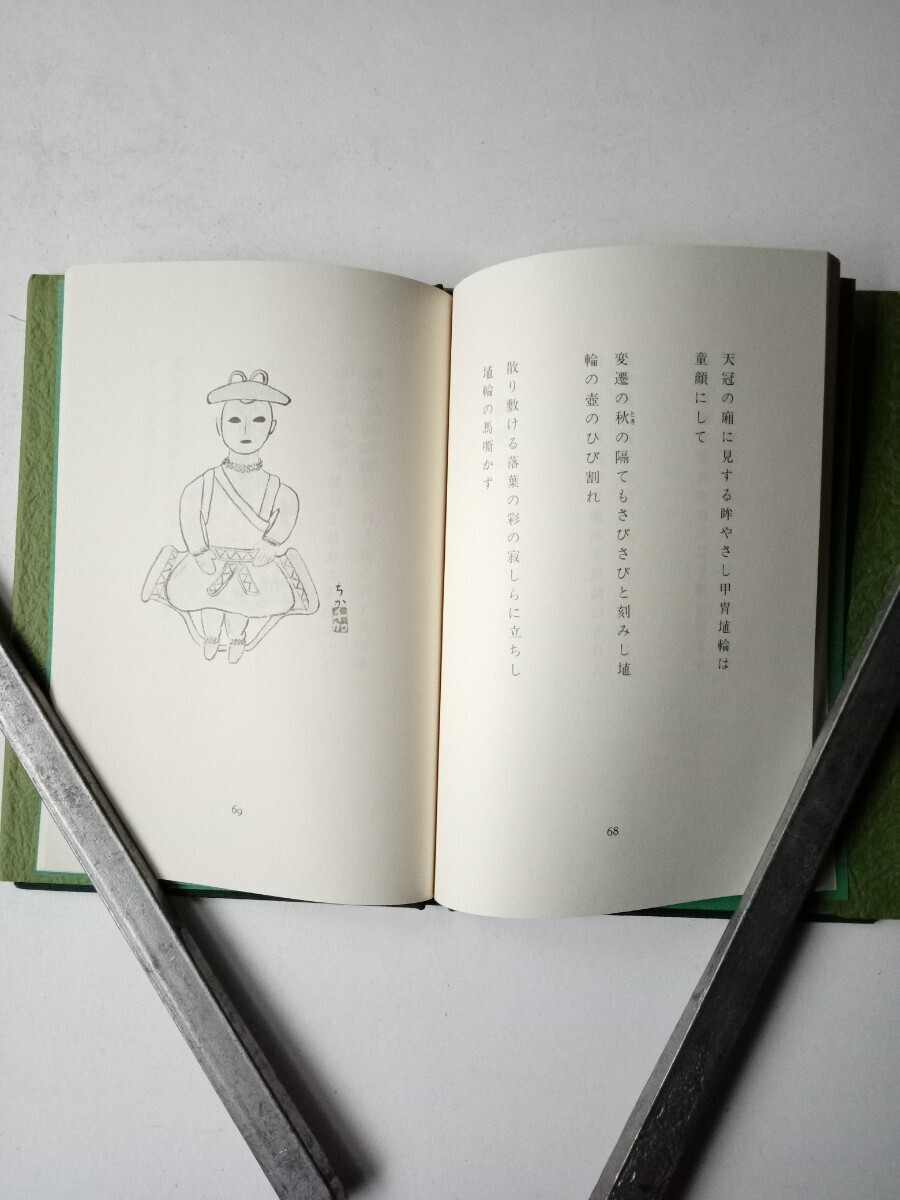 天冠の廂に見する眸やさし甲冑埴輪は
童顔にして
変遷の秋の隔てもさびさびと刻みし埴
とき
輪の壺のひび割れ
散り敷ける落葉の彩の寂しらに立ちし
埴輪の馬嘶かず
68
ちか
69